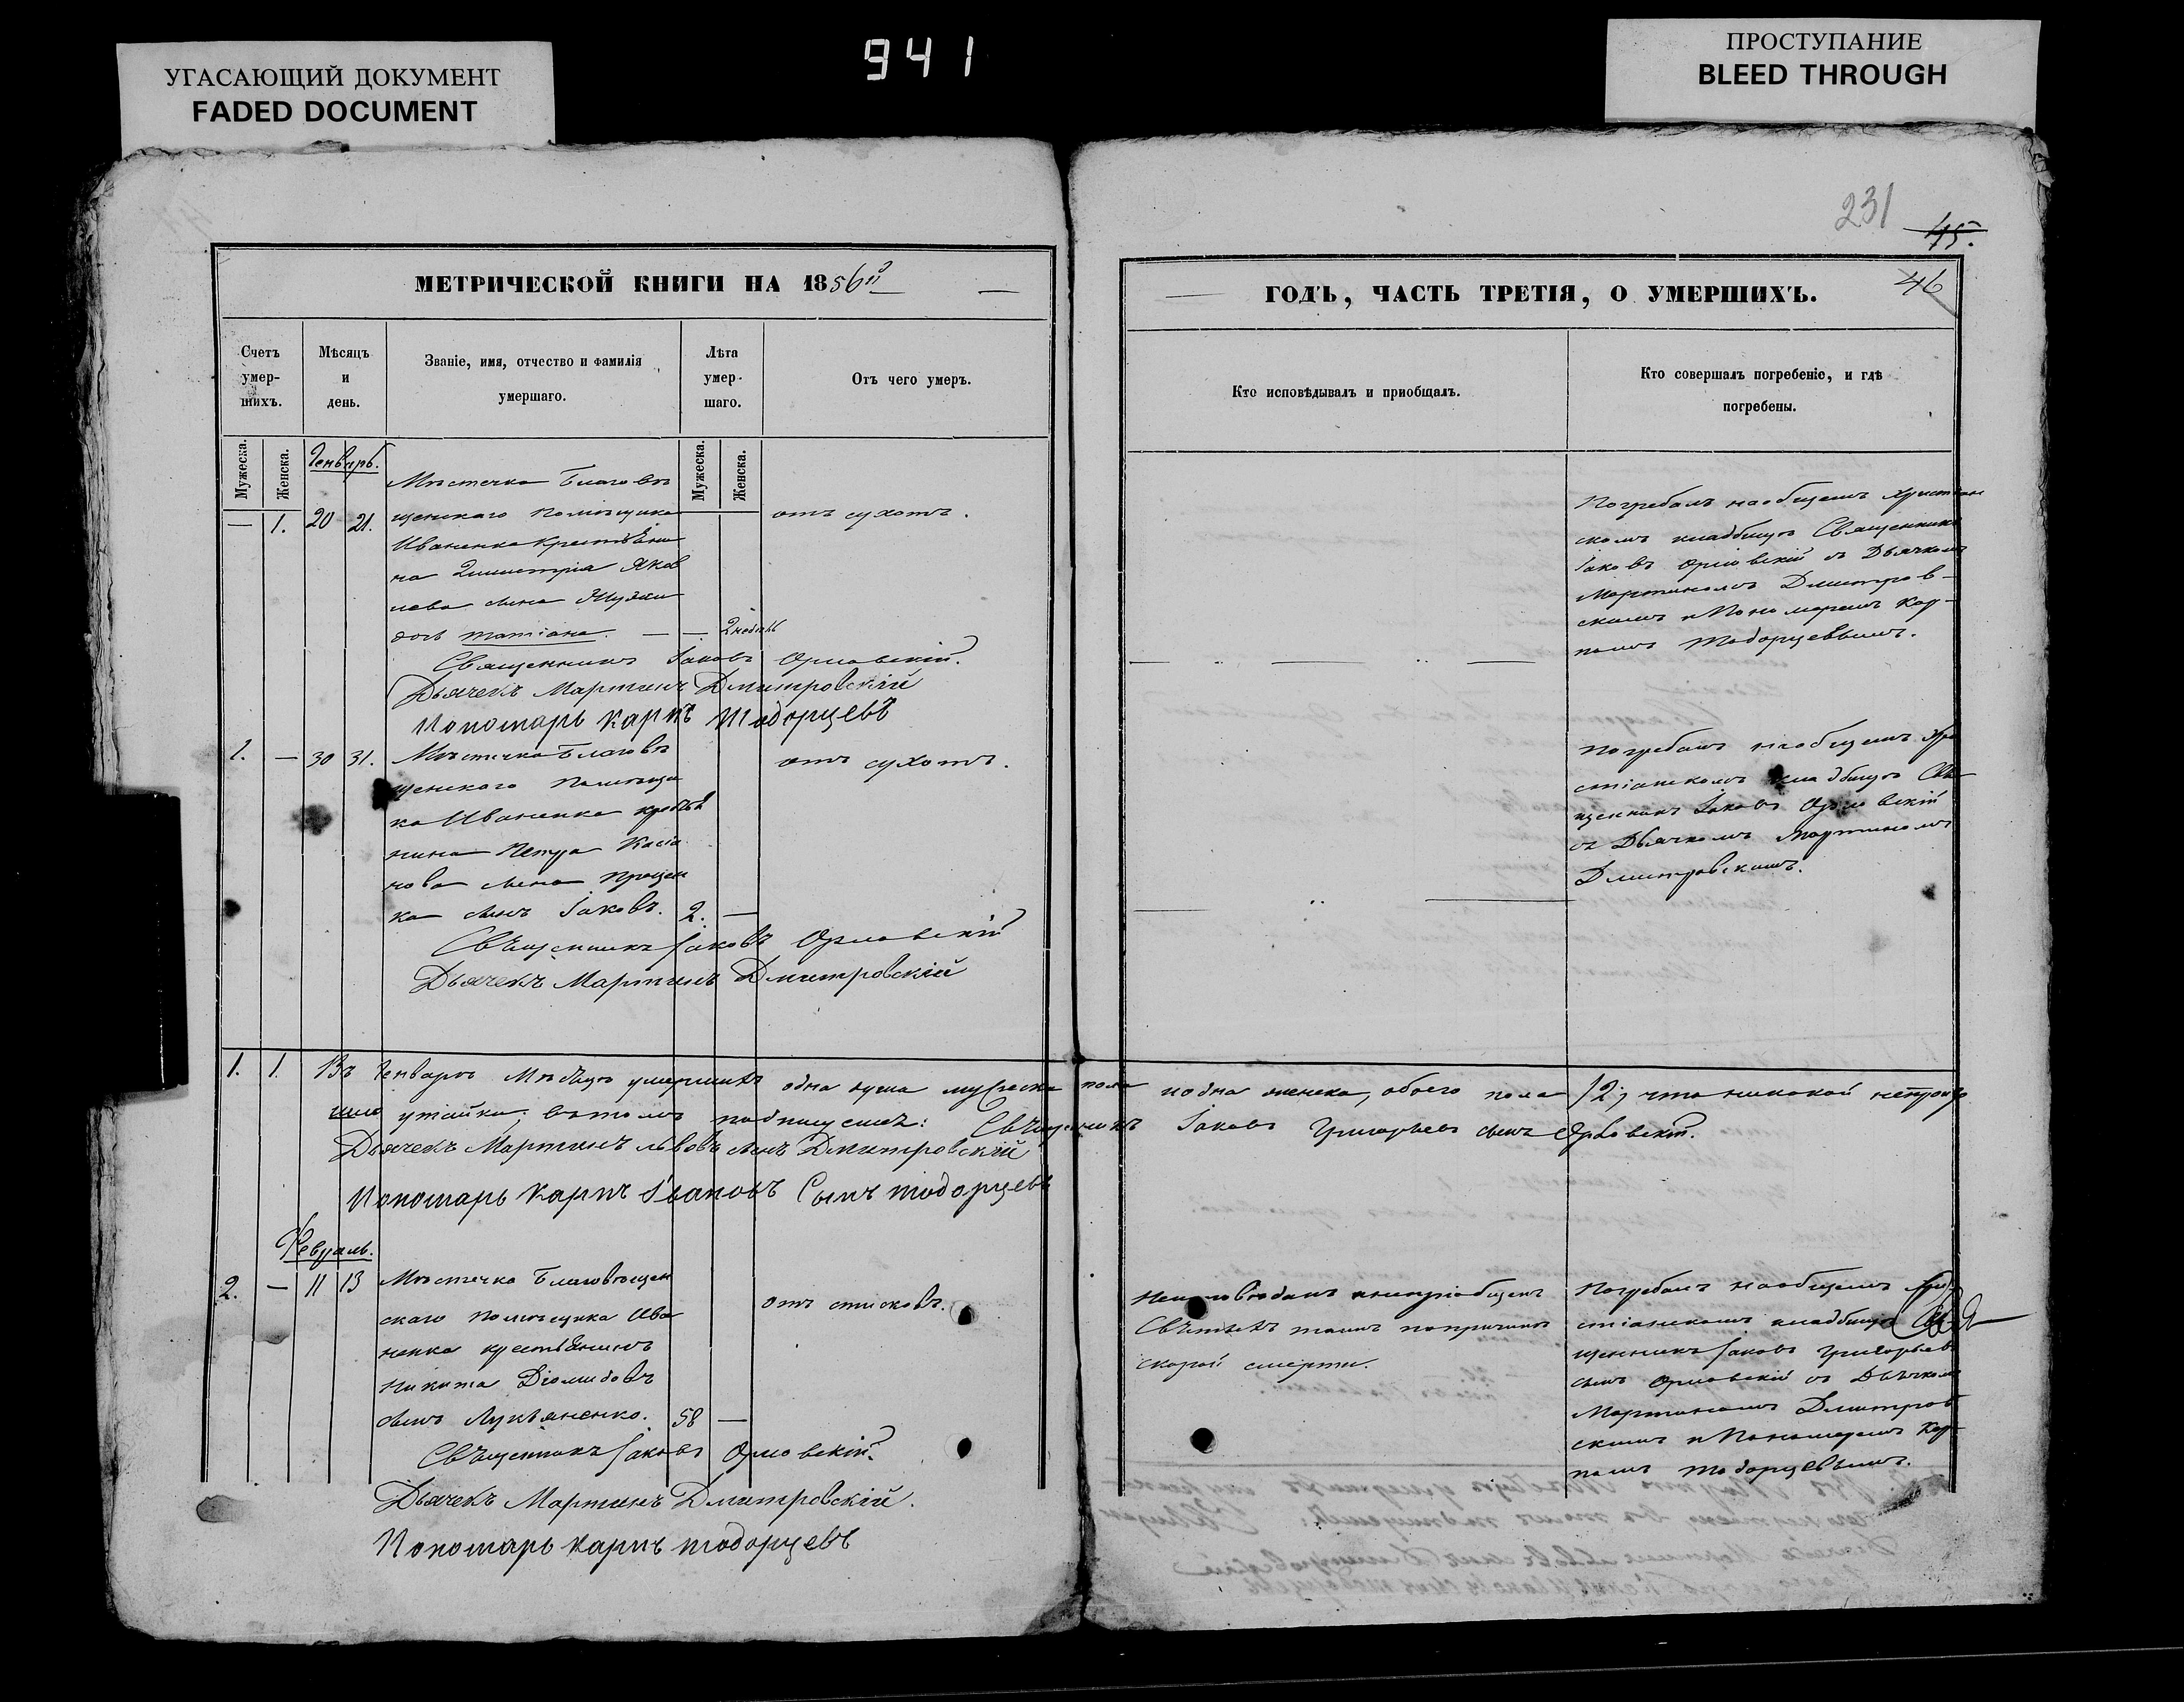 УГАСАЮЩИЙ ДОКУМЕНТ
FADED DOCUMENT
941
ПРОСТУПАНИЕ
BLEED THROUGH
231
45.
46
МЕТРИЧЕСКОЙ КНИГИ НА 1856й
ГОДЪ, ЧАСТЬ ТРЕТІЯ, О УМЕРШИХЪ.
Счетъ умер-шихъ.
Мѣсяцъ и день.
Званіе, имя, отчество и фамилія умершаго.
Лѣта умер-шаго.
Отъ чего умеръ.
Кто исповѣдывалъ и пріобщалъ.
Кто совершалъ погребеніе, и гдѣ погребены.
Мужеска.
Женска.
Мужеска.
Женска.
Генварь.
— 1. 20 21.
Мѣстечка Благовѣ
щенскаго помѣщика
Иваненка крестьяни
на Димитрія Яков
лева сына
дочь Татіана. — — 2 недѣль
отъ сухотъ.
Погребалъ наобщемъ христіан
скомъ кладбищѣ Священникъ
Іаковъ Орловскій съ Дьячкомъ
Мартиномъ Дмитров-
скимъ и Пономаремъ Кар-
помъ Тодорцевымъ.
Священникъ Іаковъ Орловскій.
Дьячекъ Мартинъ Дмитровскій
Пономарь Карпъ Тодорцевъ
1. — 30 31.
Мѣстечка Благовѣ
щенскаго Помѣщи
ка Иваненка крестья
нина Петра Касіа
нова сына Процен
ка сынъ Іаковъ. 2. —
отъ сухотъ.
Погребалъ наобщемъ Хри
стіанскомъ кладбищѣ Свя
щенникъ Іаковъ Орловскій
съ Дьячкомъ Мартиномъ
Дмитровскимъ.
Священникъ Іаковъ Орловскій
Дьячекъ Мартинъ Дмитровскій
1. 1. Въ Генварѣ Мѣсяцѣ умершихъ одна душа мужеска пола и одна женска, обоего пола /2; что никакой непроизо
шло утайки; въ томъ подпишемся: Священникъ Іаковъ Григорьевъ сынъ Орловскій.
Дьячекъ Мартинъ Львовъ сынъ Дмитровскій
Пономарь Карпъ Ивановъ Сынъ Тодорцевъ
Февраль.
2. — 11 13
Мѣстечка Благовѣщен
скаго помѣщика Ива
ненка крестьянинъ
Никита Діомидовъ
сынъ Лукьяненко. 58 —
отъ
Неисповѣданъ инепріобщенъ
Святыхъ таинъ попричинѣ
скорой смерти.
Погребалъ наобщемъ Хри
стіанскомъ кладбищѣ Свя
щенникъ Іаковъ Григорьевъ
сынъ Орловскій съ Дьячкомъ
Мартиномъ Дмитров
скимъ и Пономаремъ Кар-
помъ Тодорцевымъ.
Священникъ Іаковъ Орловскій.
Дьячекъ Мартинъ Дмитровскій.
Пономарь Карпъ Тодорцевъ